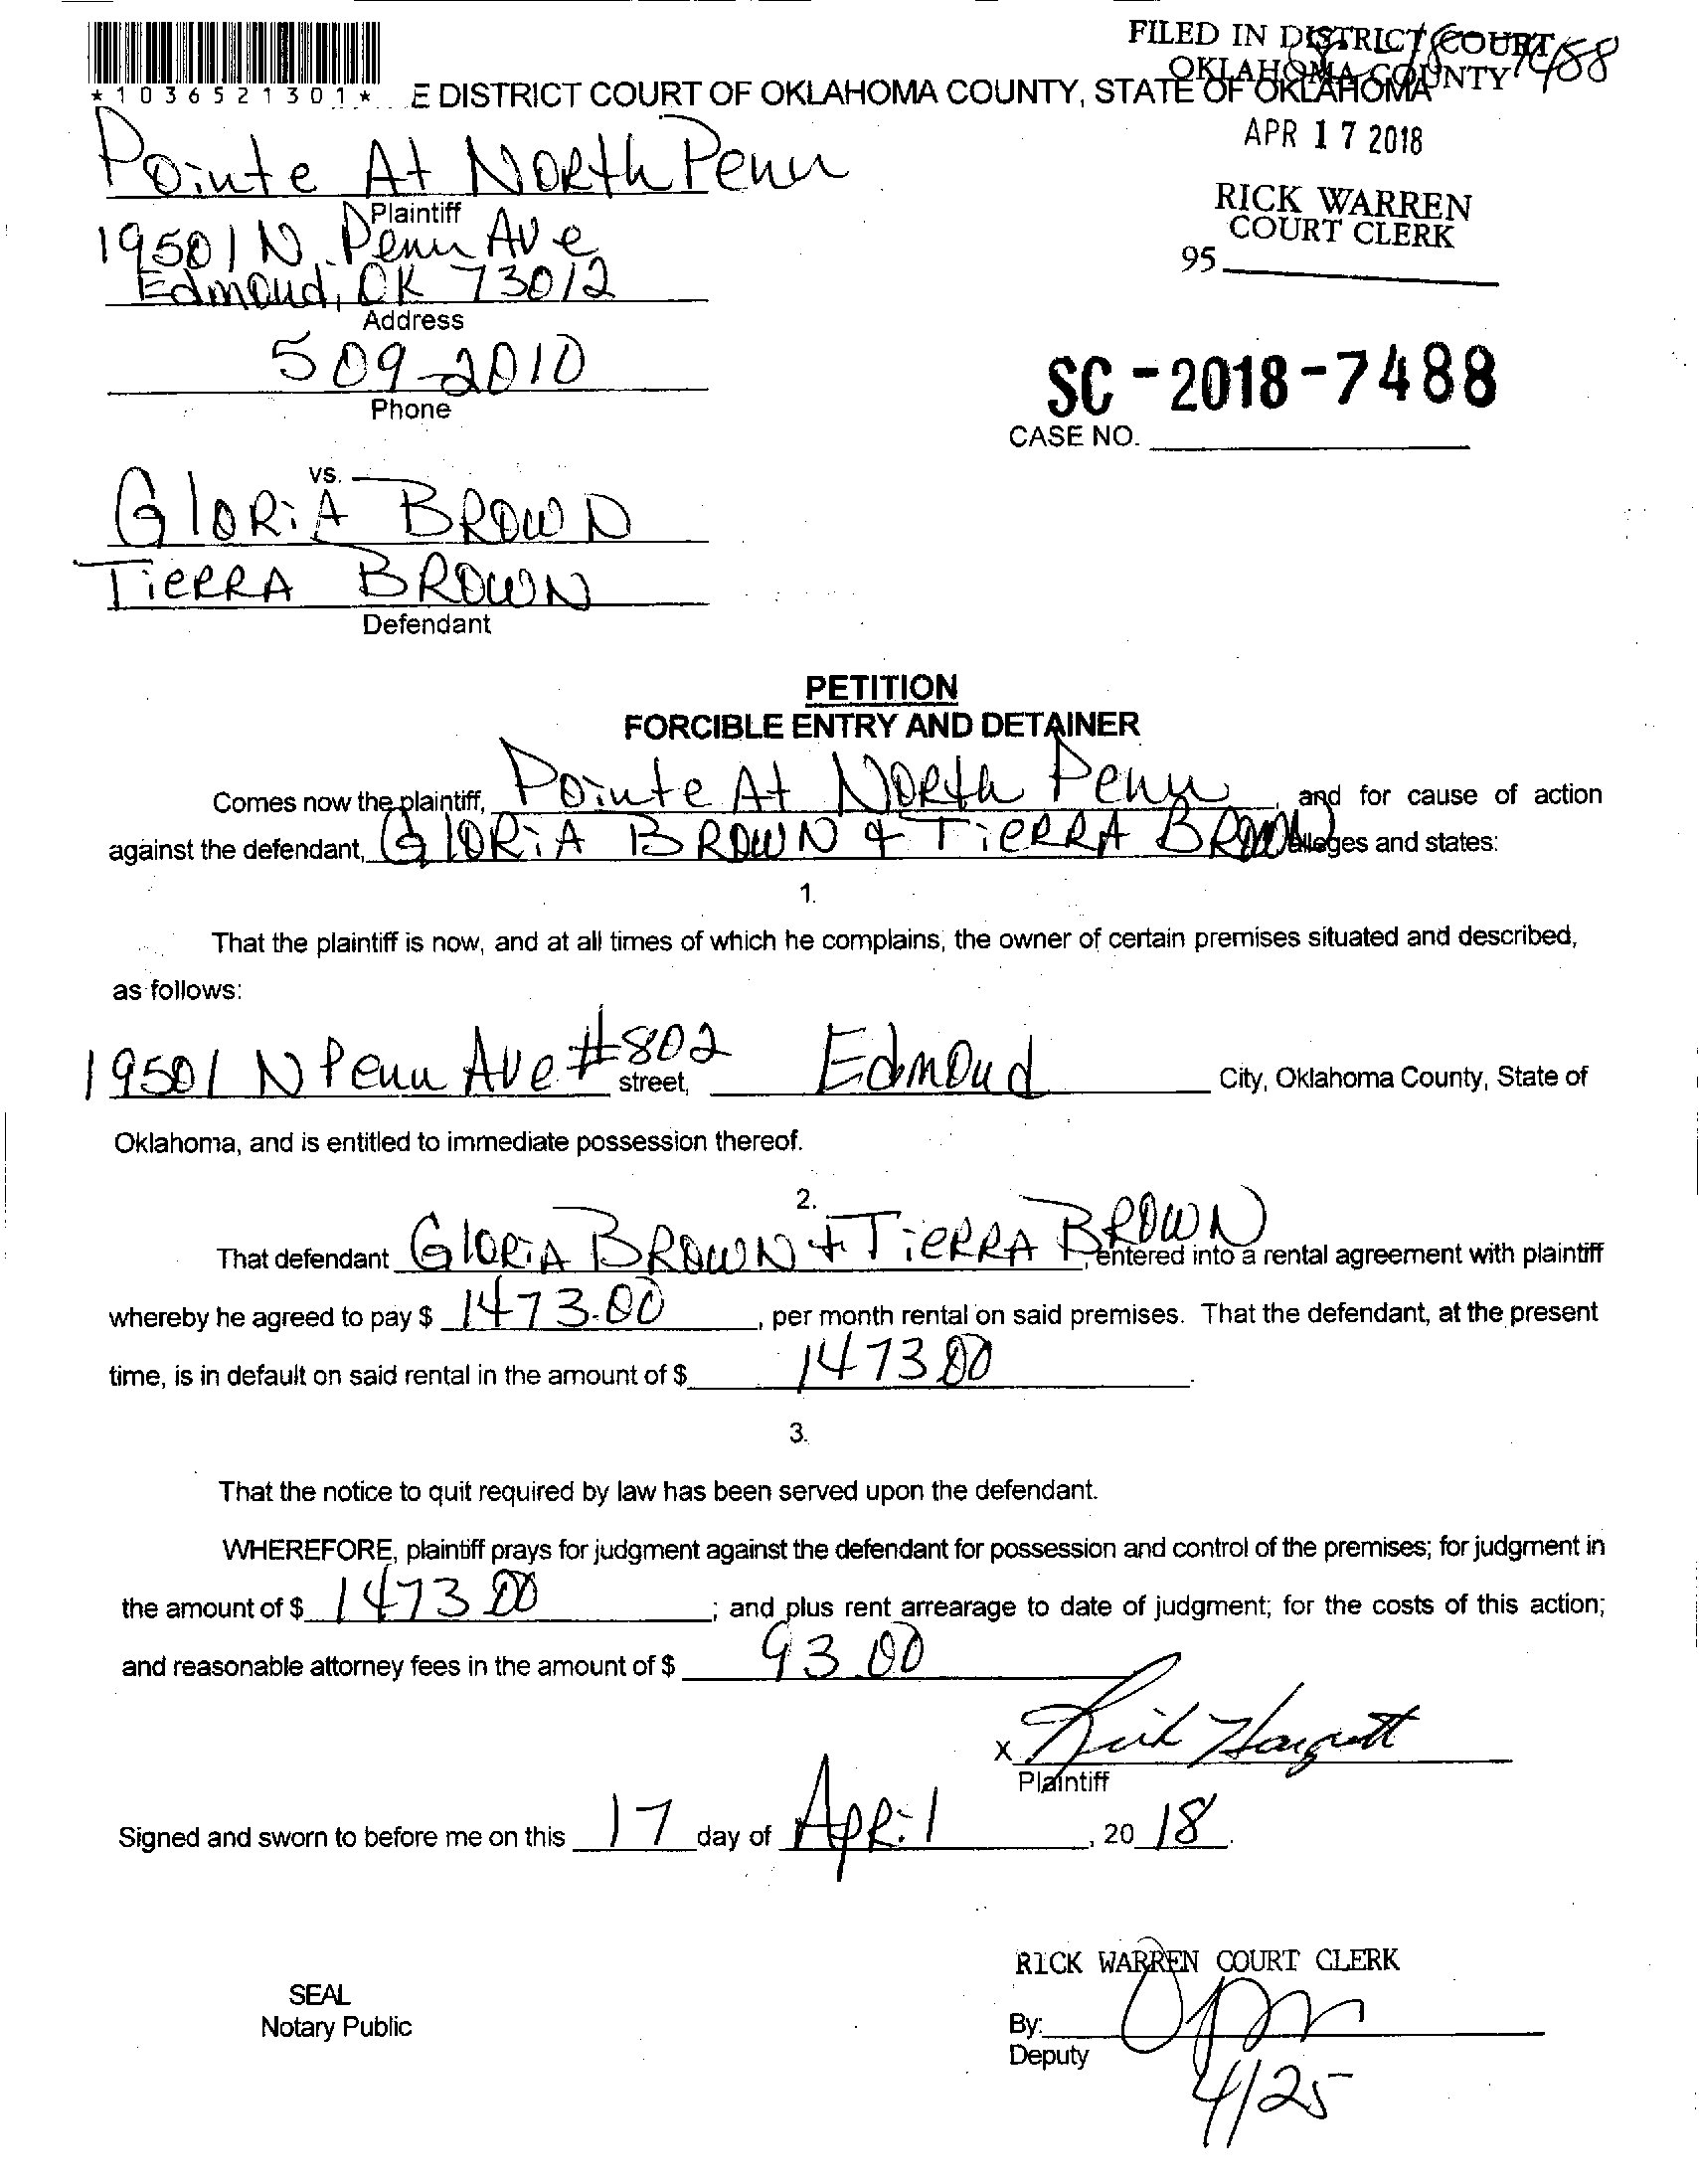 FILED IN DISTRICT COURT
OKLAHOMA COUNTY
*1036521301*
E DISTRICT COURT OF OKLAHOMA COUNTY, STATE OF OKLAHOMA
APR 17 2018
RICK WARREN
COURT CLERK
95
Pointe At North Penn
Plaintiff
19501 N. Penn Ave
Edmond, OK 73012
Address
509-2010
Phone
SC-2018-7488
CASE NO.
vs.
Gloria Brown
Tierra Brown
Defendant
PETITION
FORCIBLE ENTRY AND DETAINER
Comes now the plaintiff, Pointe At North Penn, and for cause of action
against the defendant, Gloria Brown + Tierra Brown alleges and states:
1.
That the plaintiff is now, and at all times of which he complains, the owner of certain premises situated and described,
as follows:
19501 N Penn Ave #802 street, Edmond City, Oklahoma County, State of
Oklahoma, and is entitled to immediate possession thereof.
2.
That defendant Gloria Brown + Tierra Brown, entered into a rental agreement with plaintiff
whereby he agreed to pay $ 1473.00, per month rental on said premises. That the defendant, at the present
time, is in default on said rental in the amount of $ 1473 00.
3.
That the notice to quit required by law has been served upon the defendant.
WHEREFORE, plaintiff prays for judgment against the defendant for possession and control of the premises; for judgment in
the amount of $ 1473 00; and plus rent arrearage to date of judgment; for the costs of this action;
and reasonable attorney fees in the amount of $ 93 00
X
Plaintiff
Signed and sworn to before me on this 17 day of April, 20 18.
RICK WARREN COURT CLERK
SEAL
Notary Public
By:
Deputy
4/25